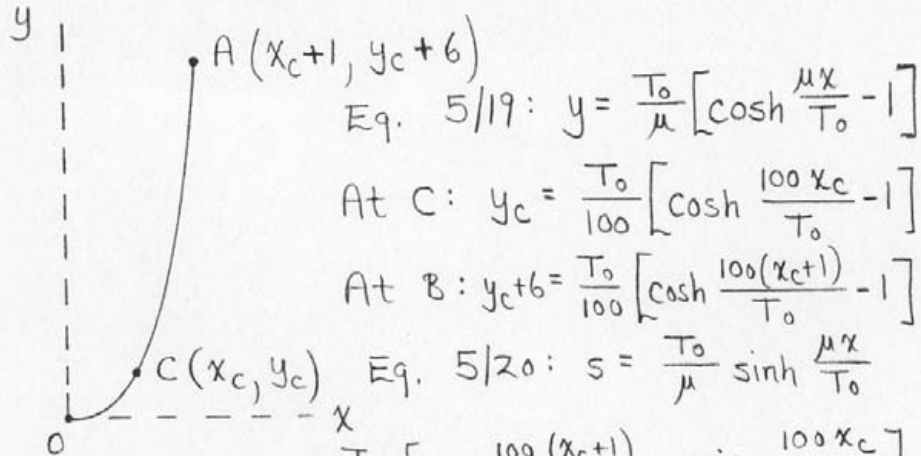 y
A (x_c+1, y_c+6)
Eq. 5/19: y = T_0/μ [cosh μx/T_0 - 1]
At C: y_c = T_0/100 [cosh 100 x_c/T_0 - 1]
At B: y_c+6 = T_0/100 [cosh 100(x_c+1)/T_0 - 1]
C (x_c, y_c) Eq. 5/20: s = T_0/μ sinh μx/T_0
x
O
100 (x_c+1) 100 x_c ]